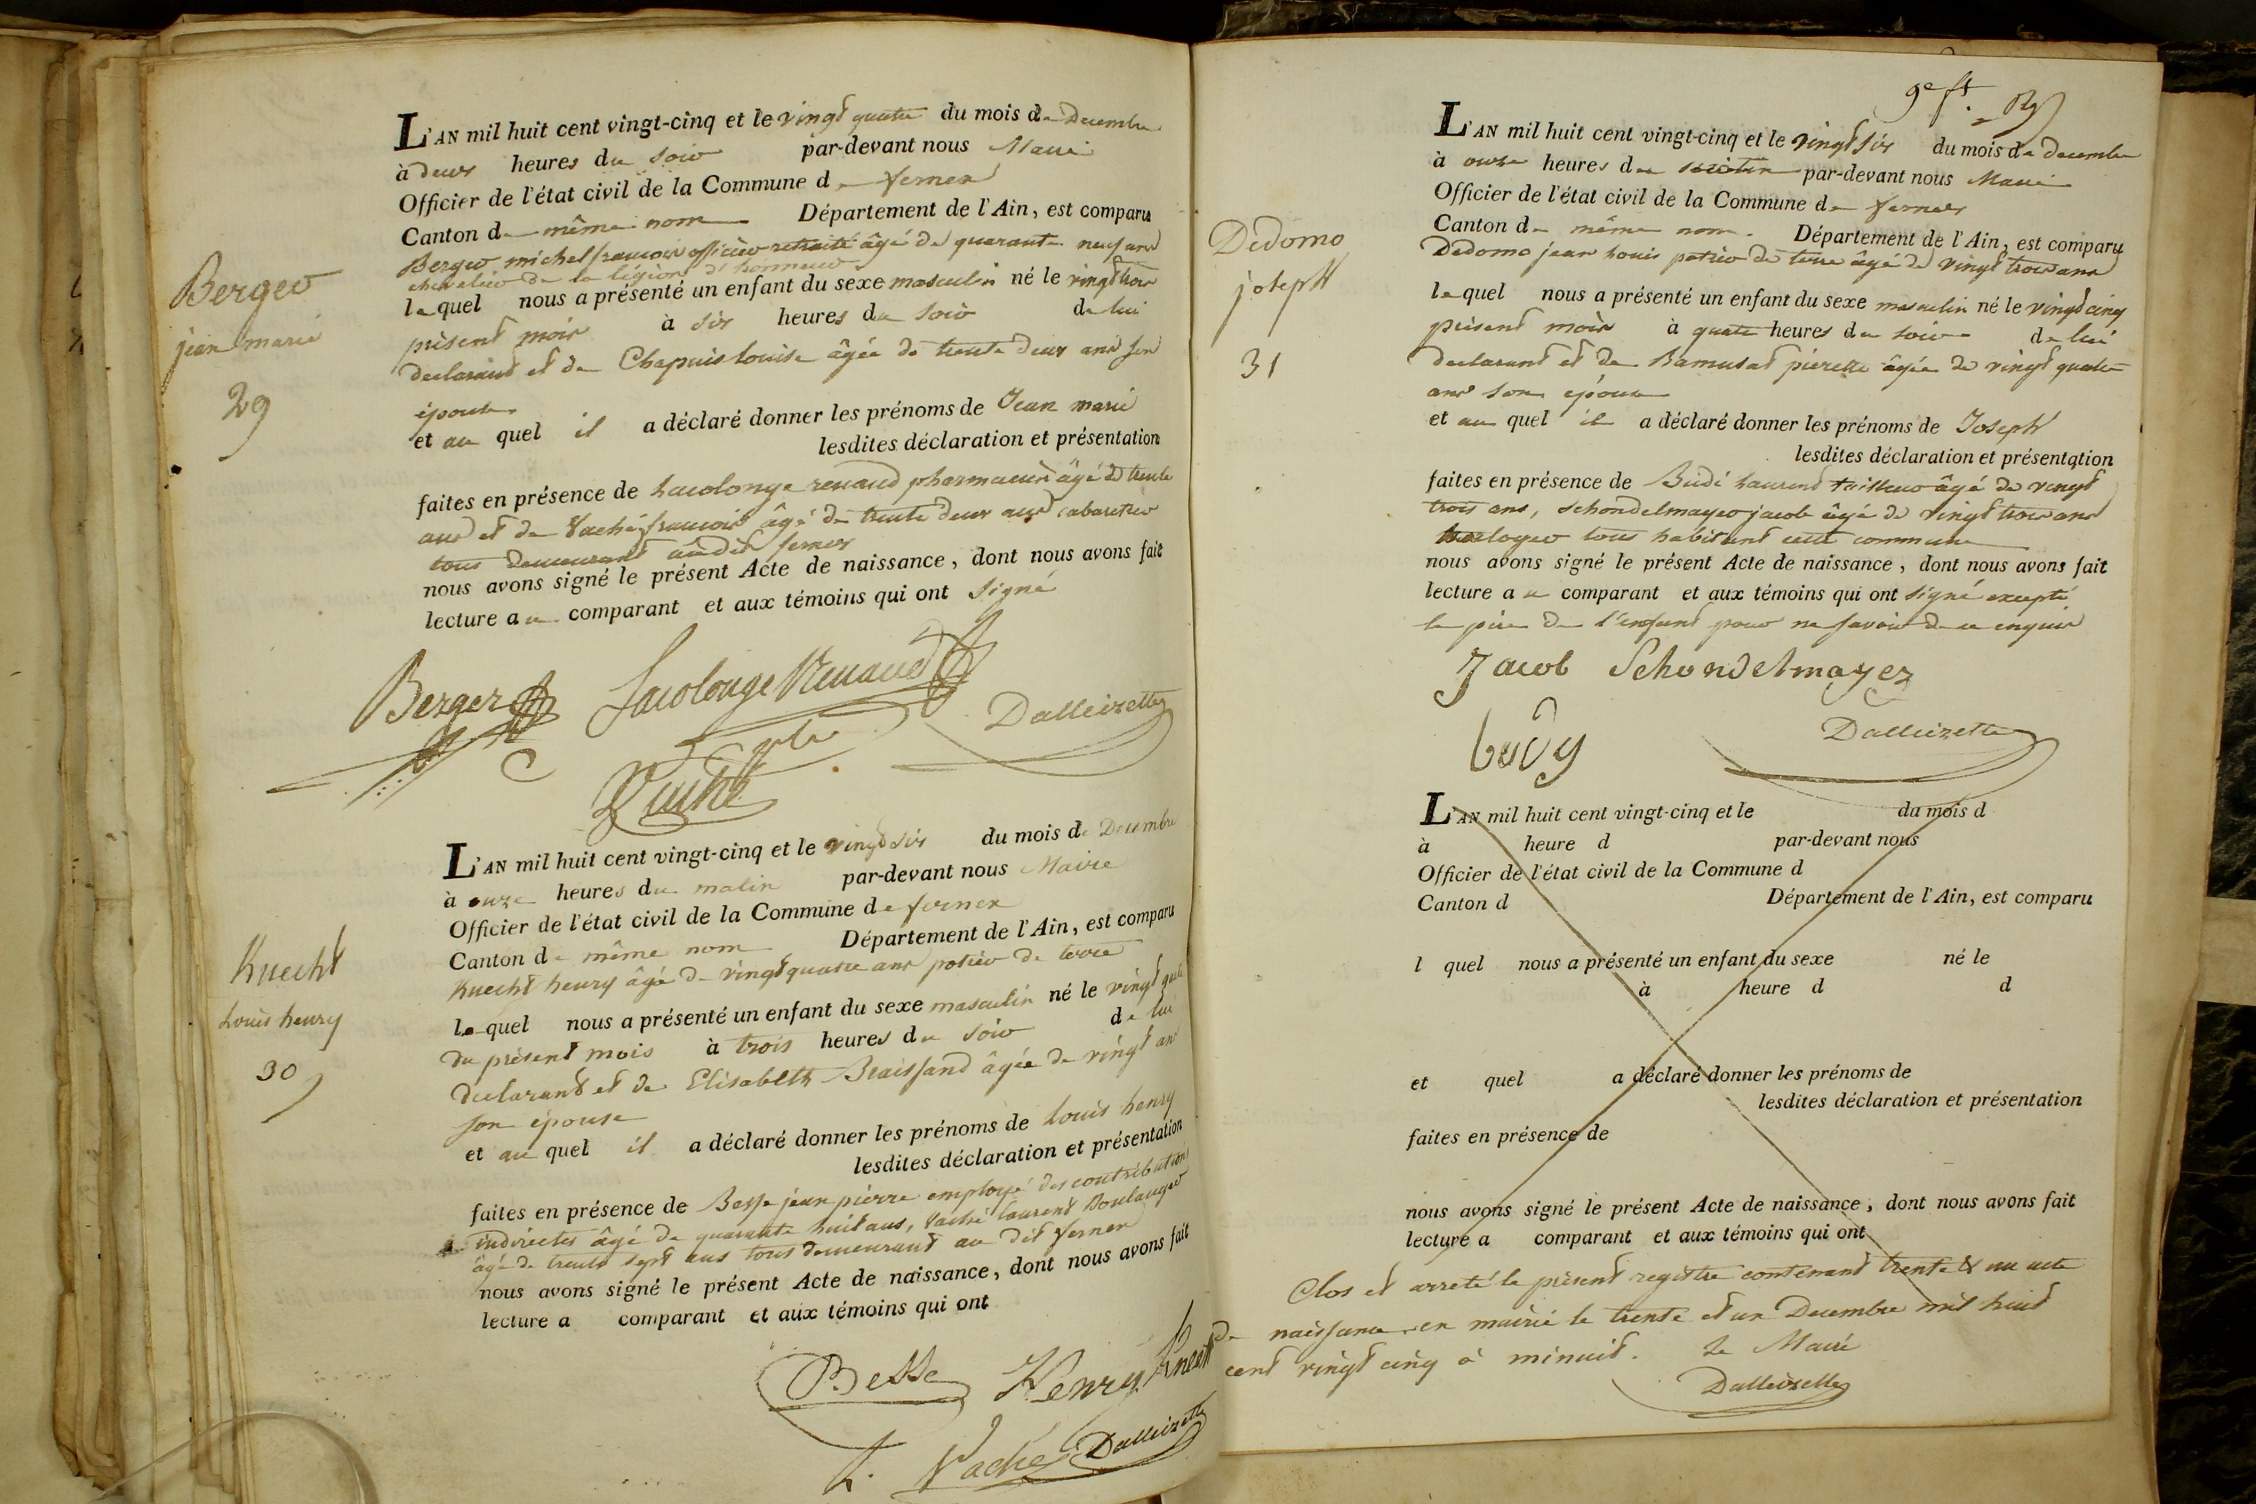 L'AN mil huit cent vingt-cinq et le vingt quatre du mois de Decembre
à deux heures du soir par-devant nous Maire
Officier de l'état civil de la Commune de fernex
Canton de même nom Département de l'Ain, est comparu
Berger michel francois officier retraité âgé de quarante neuf ans
chevalier de la légion d'honneur
lequel nous a présenté un enfant du sexe masculin né le vingt trois
présent mois à six heures du soir de lui
declarant et de Chapuis louise âgée de trente deux ans son
épouse
et au quel il a déclaré donner les prénoms de Jean marie
lesdites déclaration et présentation
faites en présence de Lacolonge renaud pharmacien âgé de trente
ans et de Vaché francois âgé de trente deux ans cabaretier
tous demeurant audit fernex
nous avons signé le présent Acte de naissance, dont nous avons fait
lecture au comparant et aux témoins qui ont signé
Berger
jean marie
29
Berger Lacolonge Renaud
Dalleizette
Vaché
L'AN mil huit cent vingt-cinq et le vingt six du mois de Decembre
à onze heures du matin par-devant nous Maire
Officier de l'état civil de la Commune de fernex
Canton de même nom Département de l'Ain, est comparu
Knecht henry âgé de vingt quatre ans potier de terre
lequel nous a présenté un enfant du sexe masculin né le vingt quatre
du présent mois à trois heures du soir de lui
declarant et de Elisabeth Braissand âgée de vingt ans
son épouse
et au quel il a déclaré donner les prénoms de Louis henry
lesdites déclaration et présentation
faites en présence de Besse jean pierre employé des contributions
indirectes âgé de quarante huit ans, Vaché laurent Boulanger
âgé de trente sept ans tous demeurant au dit fernex
nous avons signé le présent Acte de naissance, dont nous avons fait
lecture a comparant et aux témoins qui ont
Knecht
Louis henry
30
Besse Henry Knecht
L. Vaché Dalleizette
L'AN mil huit cent vingt-cinq et le vingt six du mois de decembre
à onze heures du matin par-devant nous Maire
Officier de l'état civil de la Commune de fernex
Canton de même nom. Département de l'Ain, est comparu
Dedomo jean louis potier de terre âgé de vingt trois ans
lequel nous a présenté un enfant du sexe masculin né le vingt cinq
présent mois à quatre heures du soir de lui
declarant et de Ramusat pierette âgée de vingt quatre
ans son épouse
et au quel il a déclaré donner les prénoms de Joseph
lesdites déclaration et présentation
faites en présence de Budé laurent tailleur âgé de vingt
trois ans, Schondelmayer jacob âgé de vingt trois ans
horloger tous habitant cette commune
nous avons signé le présent Acte de naissance, dont nous avons fait
lecture au comparant et aux témoins qui ont signé excepté
le père de l'enfant pour ne savoir de ce enquis
Dedomo
joseph
31
Jacob Schondelmayer
Dalleizette
L'AN mil huit cent vingt-cinq et le du mois d
à heure d par-devant nous
Officier de l'état civil de la Commune d
Canton d Département de l'Ain, est comparu
l quel nous a présenté un enfant du sexe né le
à heure d d
et quel a déclaré donner les prénoms de
lesdites déclaration et présentation
faites en présence de
nous avons signé le présent Acte de naissance, dont nous avons fait
lecture a comparant et aux témoins qui ont
Clos et arreté le présent registre contenant trente & un acte
de naissance en mairie le trente et un Decembre mil huit
cent vingt cinq à minuit. Le Maire
Dalleizette